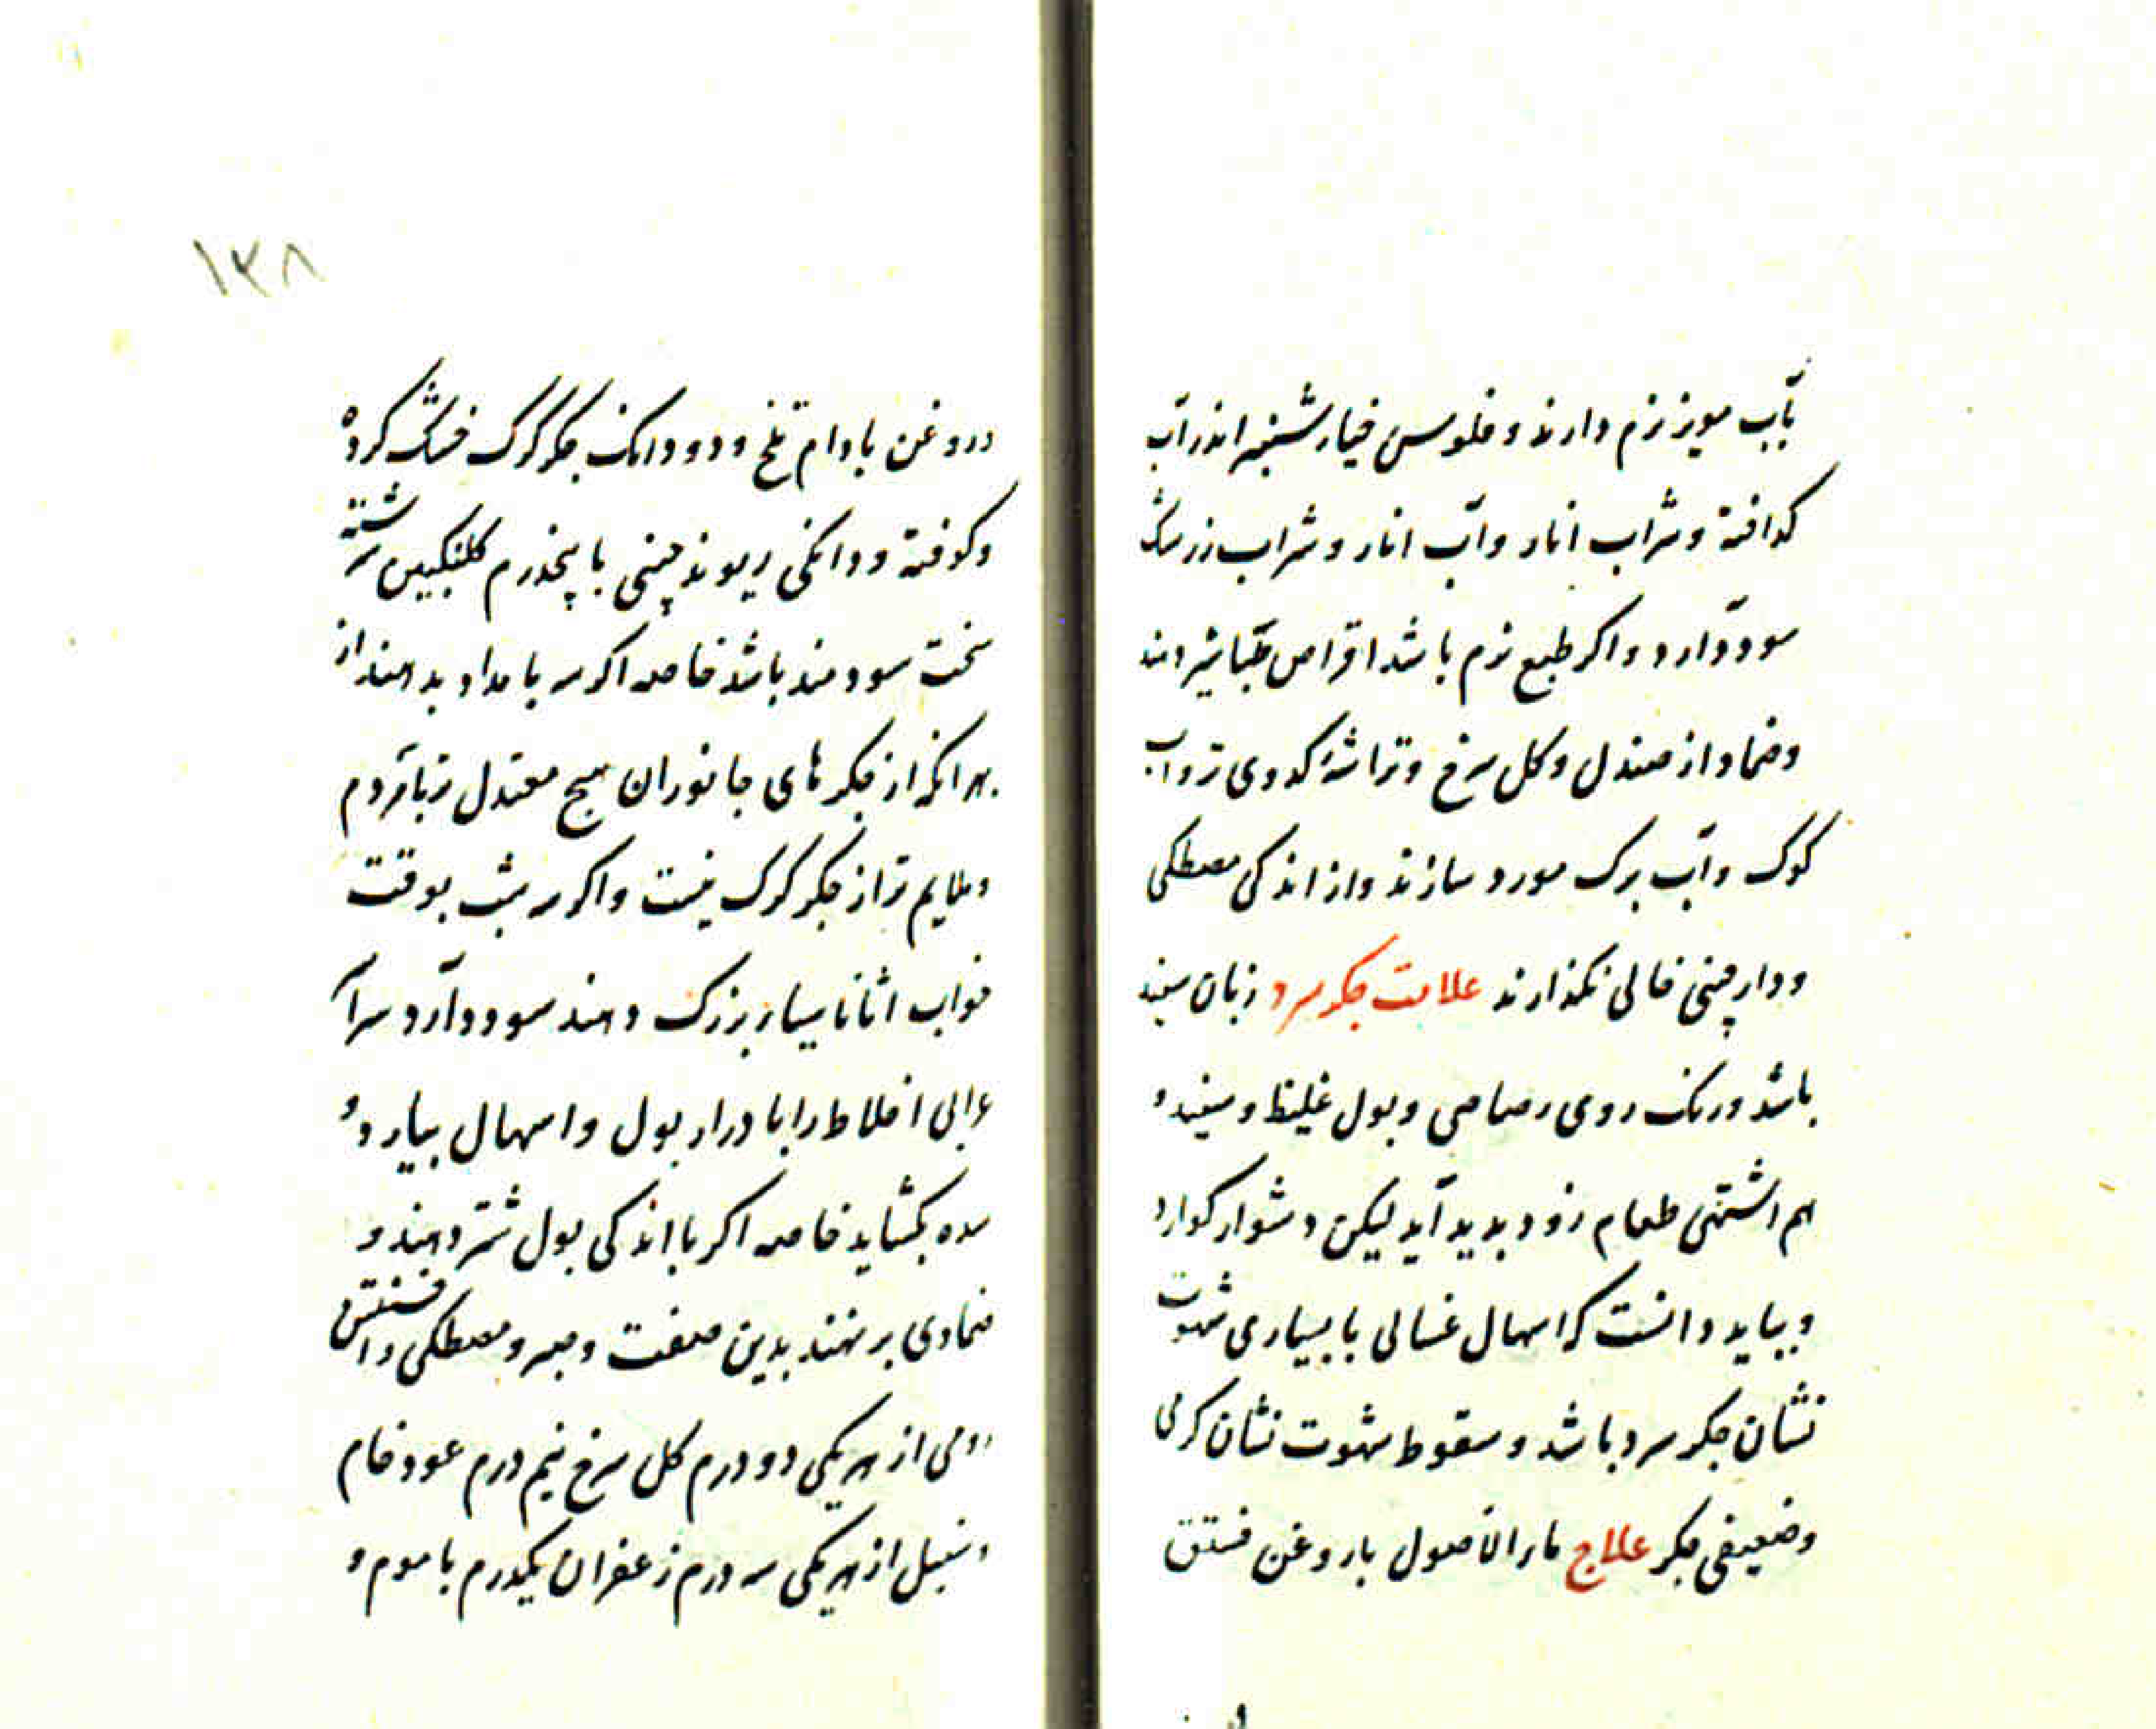 بآب مویز نرم دارند و فلوس خیارشنبر اندر آب
کداخته و شراب انار و آب انار و شراب زرشک
سود دارد و اکر طبع نرم باشد اقراص طباشیر دهند
و ضماد از صندل و کل سرخ و تراشه کدوی تر و آب
کوک و آب برک مورد سازند و از اندکی مصطکی
و دارچینی خالی نکذارند علامت جکر سرد زبان سپید
باشد و رنک روی رصاصی و بول غلیظ و سفید و
هم اشتهی طعام زود بدید آید لیکن دشوار کوارد
و بباید دانست که اسهال غسالی با بسیاری شهوت
نشان جکر سرد باشد و سقوط شهوت نشان کرمی
و ضعیفی جکر علاج ماء الاصول با روغن فستق
۱۳۸
و روغن بادام تلخ و دو دانک جکر کرک خشک کرده
و کوفته و دانکی ریوند چینی با پنجدرم کلنکبین سرشته
سخت سودمند باشد خاصه اکر سه بامداد بدهند از
بهر انکه از جکرهای جانوران هیچ معتدل تر با مردم
و ملایم تر از جکر کرک نیست و اکر سه شب بوقت
خواب اثاناسیا بزرک دهند سود دارد
اخلاط را با درار بول و اسهال بیارد و
سده بکشاید خاصه اکر با اندکی بول شتر دهند و
ضمادی بر نهند بدین صفت و صبر و مصطکی و افسنتین
رومی از هر یکی دو درم کل سرخ نیم درم عود خام
و سنبل از هر یکی سه درم زعفران یکدرم با موم و